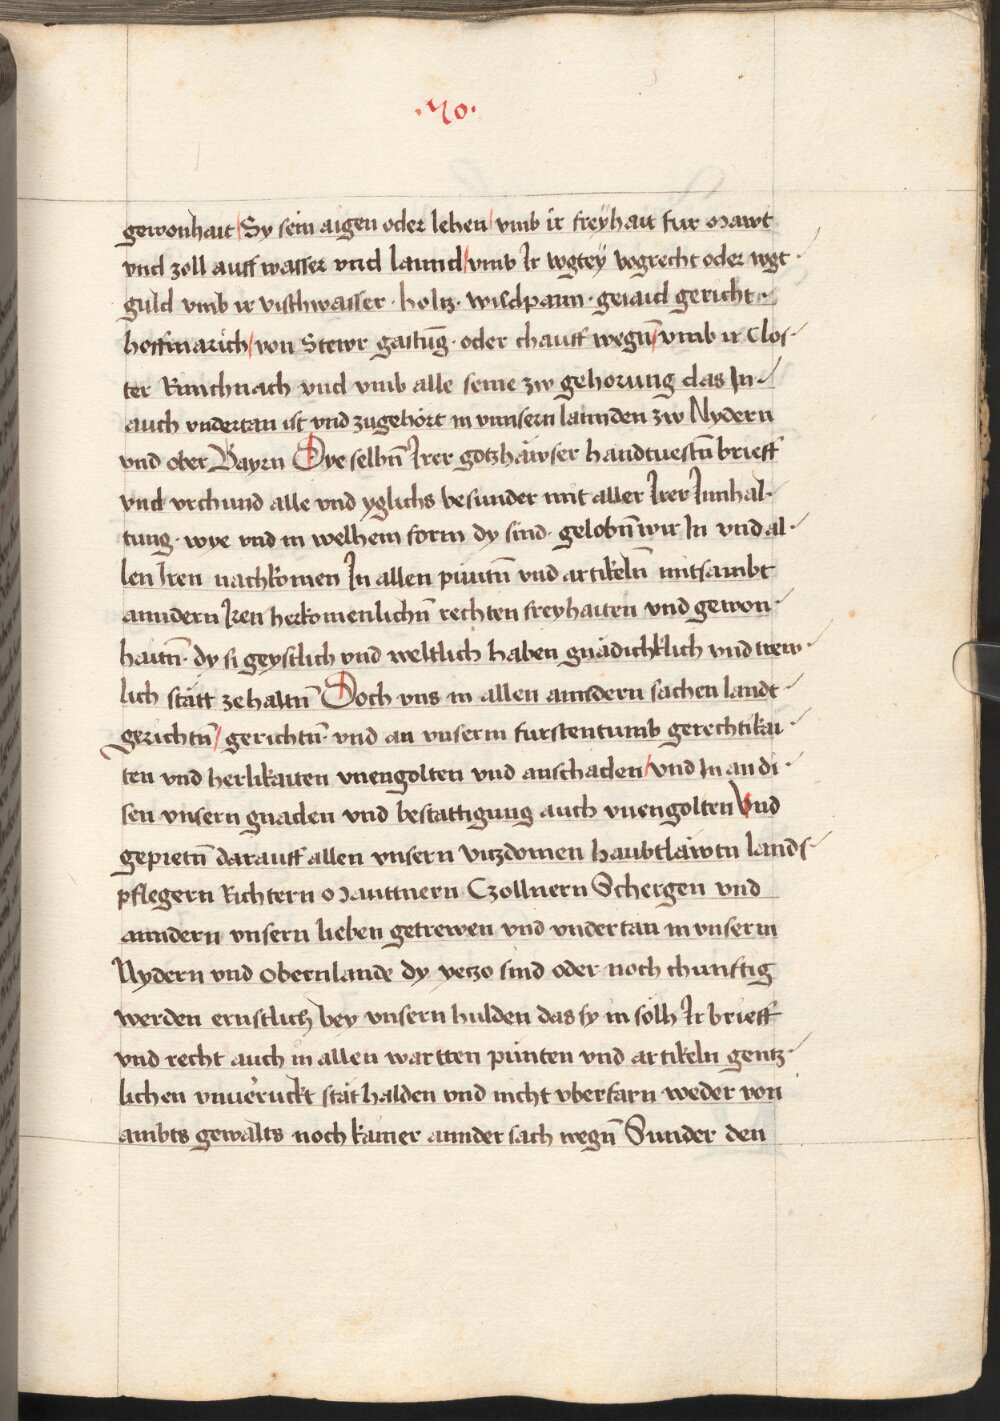 .70.
gewonhait / Sy sein aigen oder lehen / vmb ir freÿhait fur mawt
vnd zoll auff wasser vnd launnd / vmb Ir vogteÿ vogrecht oder vogt-
guld vmb ir vischwasser · holtz · wildpann · geiaid gericht-
hoffmarich / von Stewr gastũg · oder chauff wegñ / vmb ir Clos-
ter Rinchnach vnd vmb alle seine zw gehorung das In-
auch vndertan ist vnd zugehört in vnnsern lannden zw Nydern
vnd ober Bayrn Dye selbñ Irer gotzhäwser handtuestñ brieff
vnd vrchund alle vnd yglichs besunder mit aller Irer Innhal-
tung · wye vnd in welhem form dy sind · gelobñ wir In vnd al-
len Iren nachkomen In allen püntñ vnd artikelñ mitsambt
anndern Iren herkomenlichñ rechten freyhaiten vnd gewon-
haitñ · dy si geystlich vnd weltlich haben gnädichklich vnd trew-
lich stätt ze haltñ Doch vns in allen anndern sachen landt-
gerichtñ / gerichtñ · vnd an vnserm furstentumb gerechtikai-
ten vnd herlikaiten vnengolten vnd anschaden / vnd In an di-
sen vnsern gnaden vnd bestattigung auch vnengolten Vnd
gepietñ darauff allen vnsern vitzdomen haubtläwtn lands-
pflegern Richtern Mauttnern Czollnern Schergen vnd
anndern vnsern lieben getrewen vnd vndertan in vnserm
Nydern vnd obernlande dy yetzo sind oder noch chunftig
werden ernstlich bey vnsern hulden das sy in sölh Ir brieff
vnd recht auch in allen wartten pünten vnd artikeln gentz-
lichen vnuerruckt stät halden vnd nicht vberfarn weder von
ambts gewalts noch kainer annder sach wegñ Sunder den